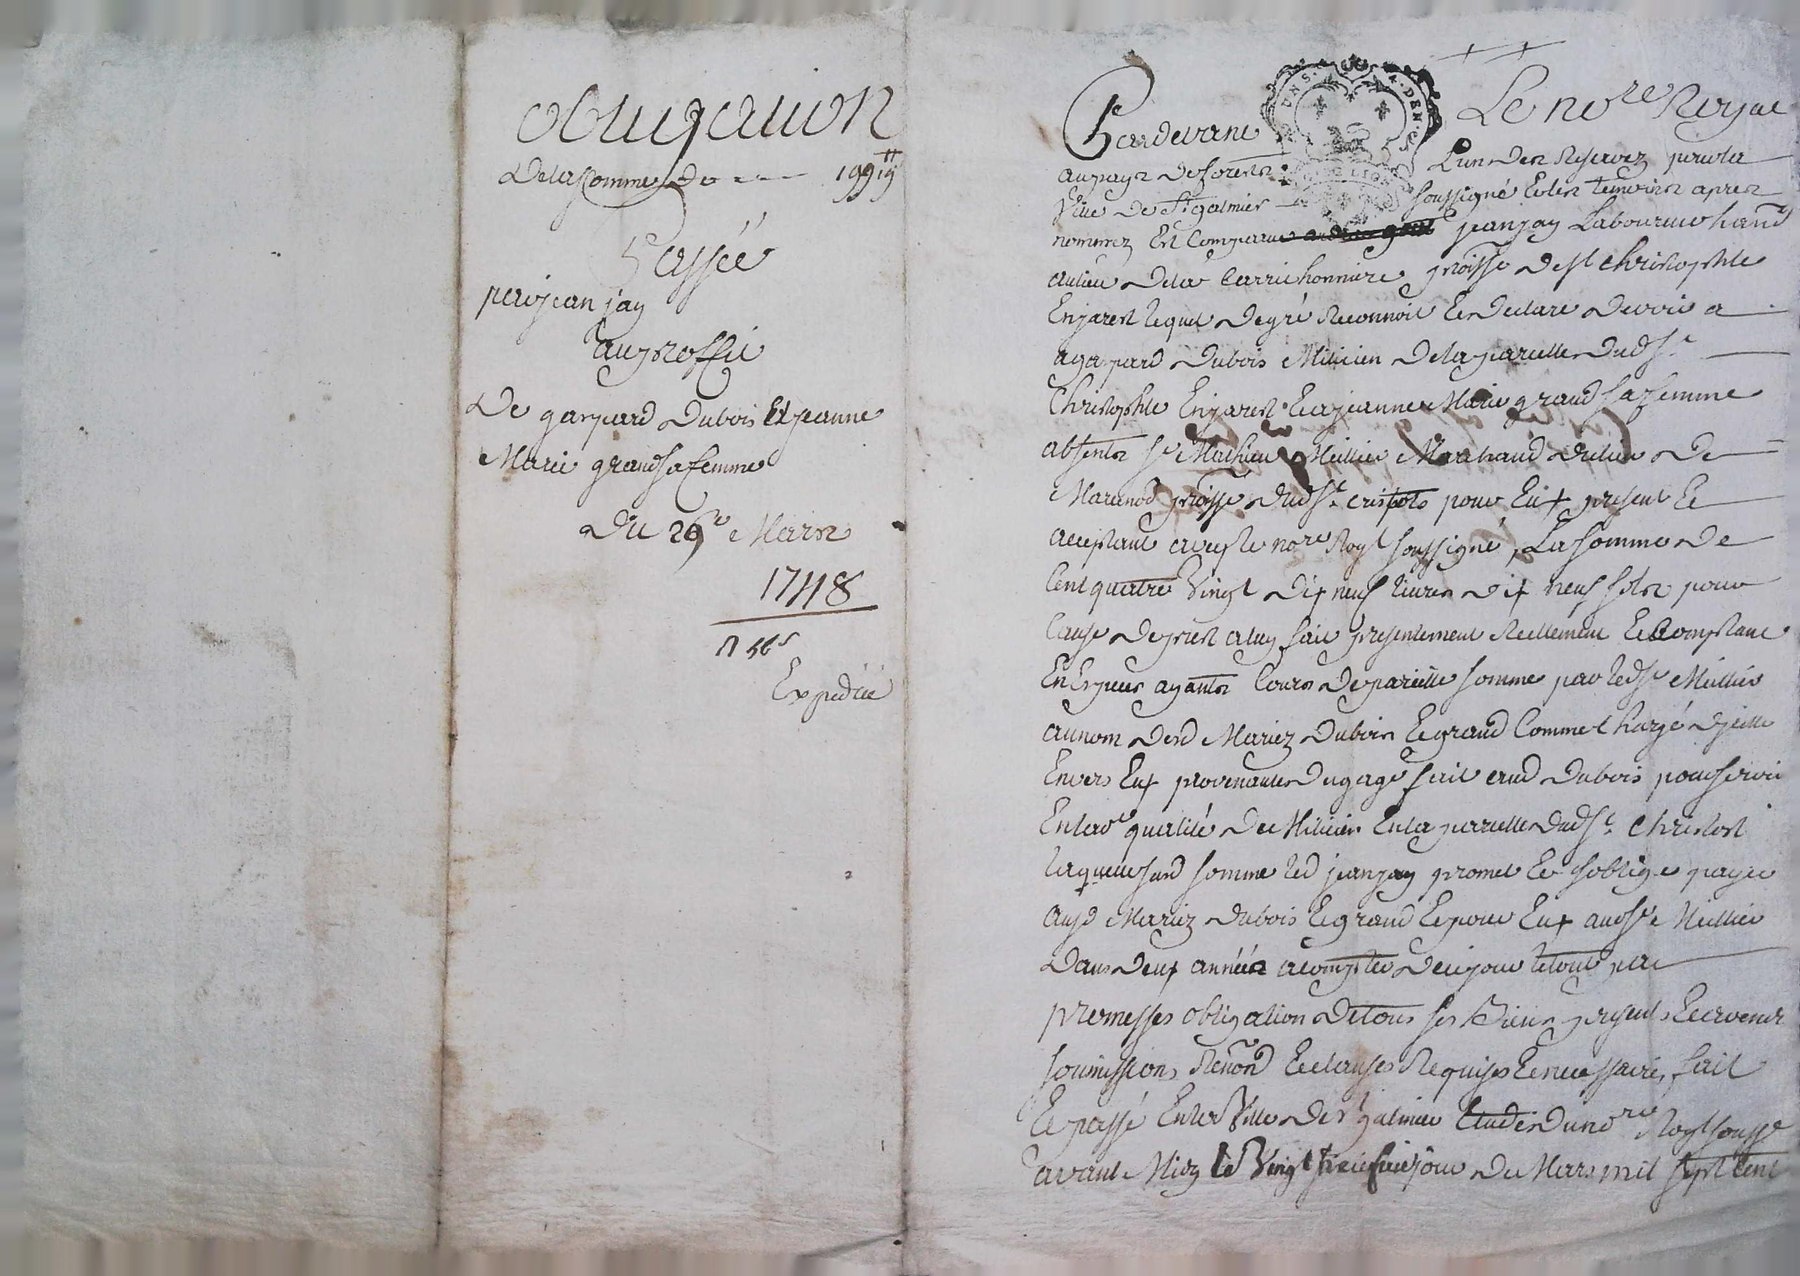 obligation
De la somme De --- 199ᴸᴸ 19ˢ
Passée
par jean jay
au proffit
De gaspard Dubois Et jeanne
Marie grand sa femme
Du 29ᵉ Mars
1748
n 56ˢ
Expediée
Pardevant Le noʳᵉ Royal
au pays De forests L'un des Reservez pour la
Ville De Sᵗ galmier soussigné Et les temoins apres
nommez Est Comparu jean jay Laboureur habᵗ
au lieu De la Carrichonniere proisse De Sᵗ Christophle
En jarest lequel De gré Reconnoit Et Declare Devoir a
a gaspard Dubois Milicien De la parcelle Dud Sᵗ
Christophle En jarest Et a jeanne Marie grand sa femme
absents Sʳ Mathieu Meillier Marchand Du lieu De
Maranod proisse Dud Sᵗ cristofo pour Eux present Et
acceptant avec le noʳᵉ Roỹl soussigné, La somme De
Cent quatre Vingt Dix neuf livres Dix neuf sols pour
Cause De prest a luy fait presentement Reellement Et Comptant
En Especes ayants Cours De pareille somme par led Sʳ Meillier
au nom Desd Mariez Dubois Et grand Comme Chargé D'jcelle
Envers Eux provenante Du gage fait aud Dubois pour servir
En lad qualité De Milicien En la parcelle Dud Sᵗ Christost
laquelle susd somme led jean jay promet Et s'oblige payer
ausd Mariez Dubois Et grand Et pour Eux aud Sʳ Meillier
Dans Deux années a compter De ce jour le tout par
promesses obligation De tous ses Biens presents Et avenir
soumissions Renonᵈ Et clauses Requises Et necessaires, fait
Et passé En la Ville De Sᵗ galmier Etude Du noʳᵉ Royl soussᵉ
avant Midy le Vingt jour De Mars mil sept Cent